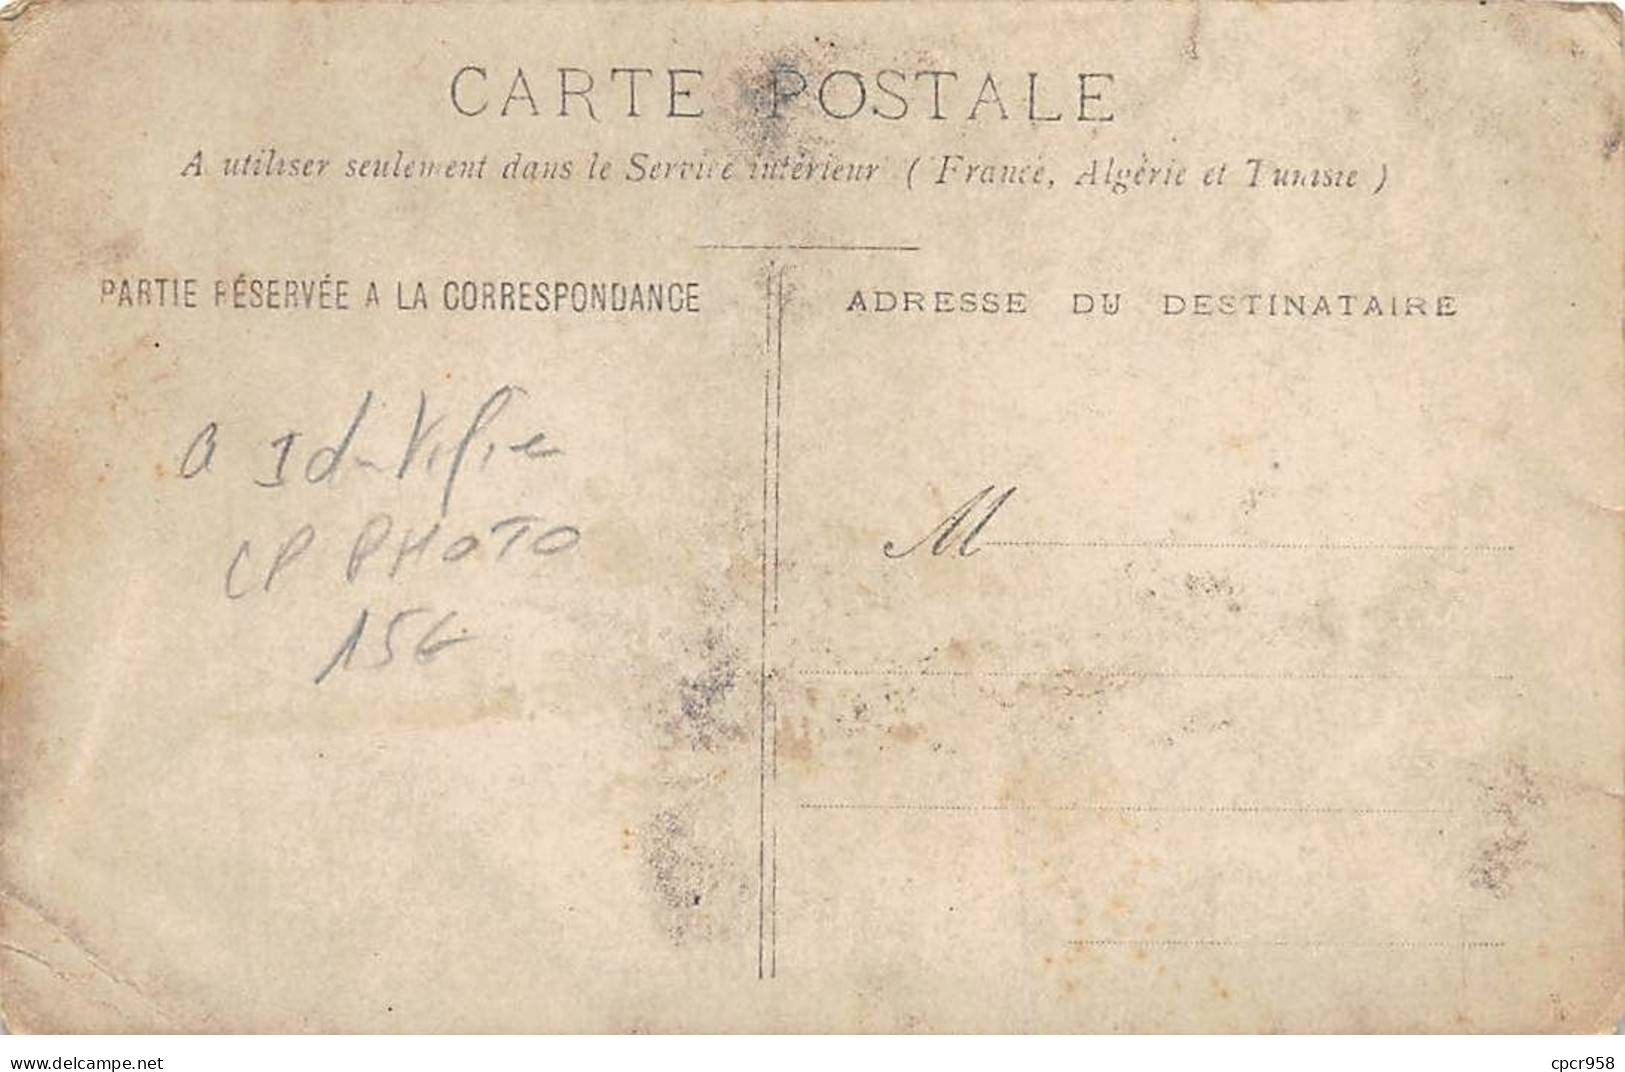 CARTE POSTALE
A utiliser seulement dans le Service intérieur ( France, Algérie et Tunisie )
PARTIE RÉSERVÉE A LA CORRESPONDANCE
ADRESSE DU DESTINATAIRE
a Identifie
CP PHOTO
15€
M
www.delcampe.net
cpcr958